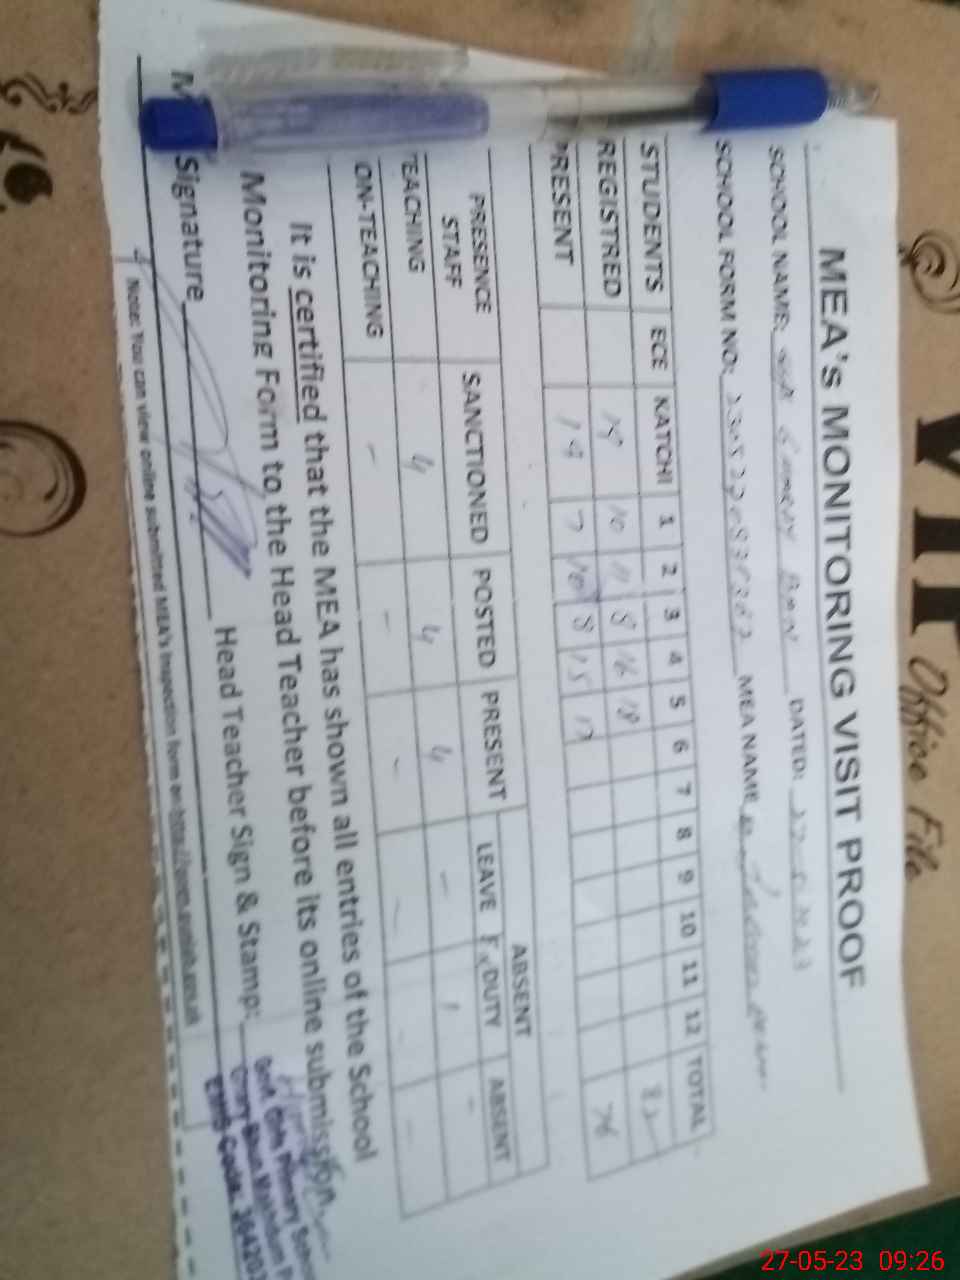 MEA's MONITORING VISIT PROOF
SCHOOL NAME: DATED:
SCHOOL FORM NO: MEA NAME
STUDENTS ECE KATCHI 1 2 3 4 5 6 7 8 9 10 11 12 TOTAL
REGISTRED 19 10 11 8 16 18 82
PRESENT 19 7 10 8 15 17 76
PRESENCE SANCTIONED POSTED PRESENT ABSENT
STAFF LEAVE F. DUTY ABSENT
TEACHING 4 4 4 - 1 -
ON-TEACHING - - - - - -
It is certified that the MEA has shown all entries of the School
Monitoring Form to the Head Teacher before its online submission.
Signature Head Teacher Sign & Stamp:
Govt. Girls Primary School
EMIS Code.
Note: You can view online submitted MEA's inspection form on
VIP
Office File
27-05-23 09:26